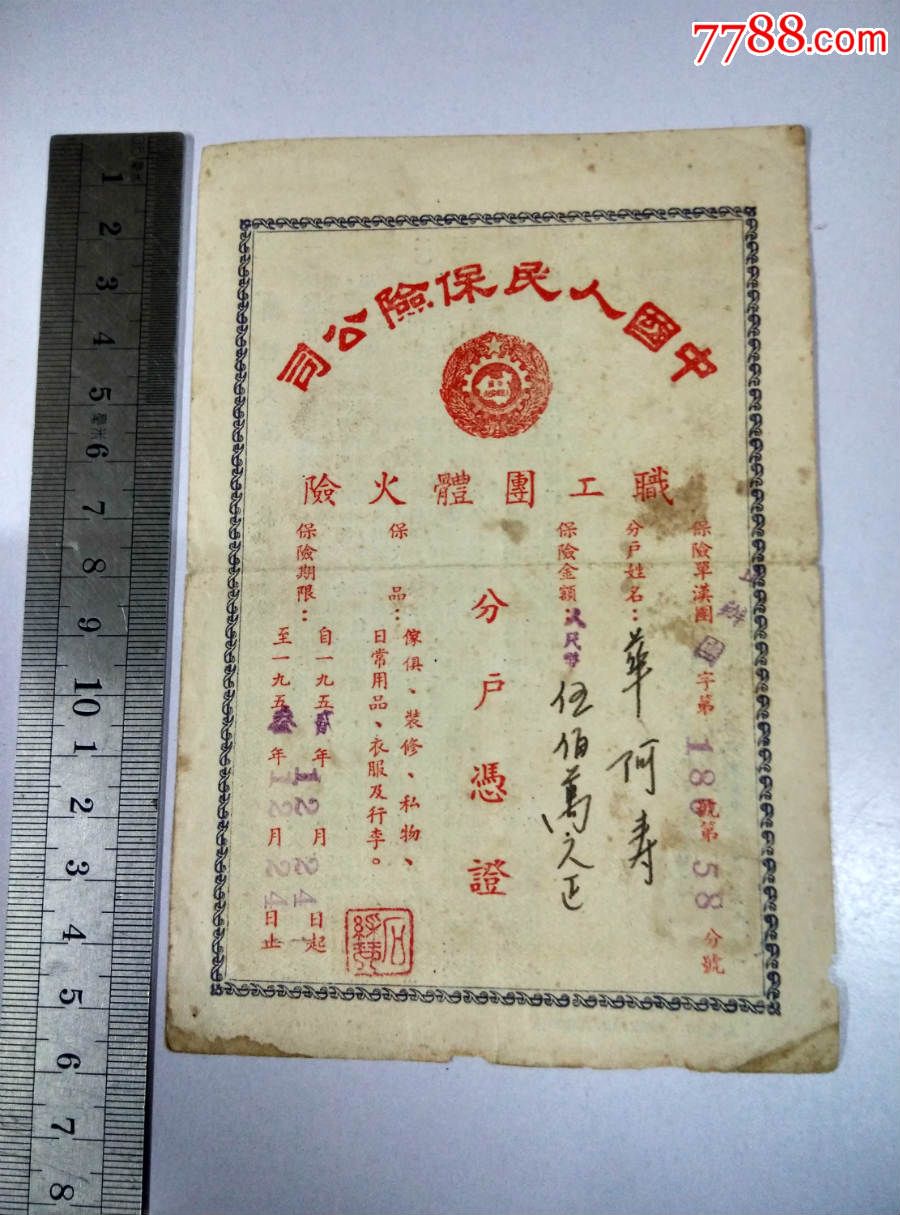 7788.com
中國人民保險公司
職工團體火險
分戶憑證
保險單漢團 字第 186 號第 58 分號
分戶姓名：華阿寿
保險金額 人民幣 伍佰萬元正
保品：傢俱、裝修、私物、
日常用品、衣服及行李。
保險期限：自一九五貳年12月24日起
至一九五叁年12月24日止
1 2 3 4 5 毫米 6 7 8 9 10 1 2 3 4 5 6 7 8